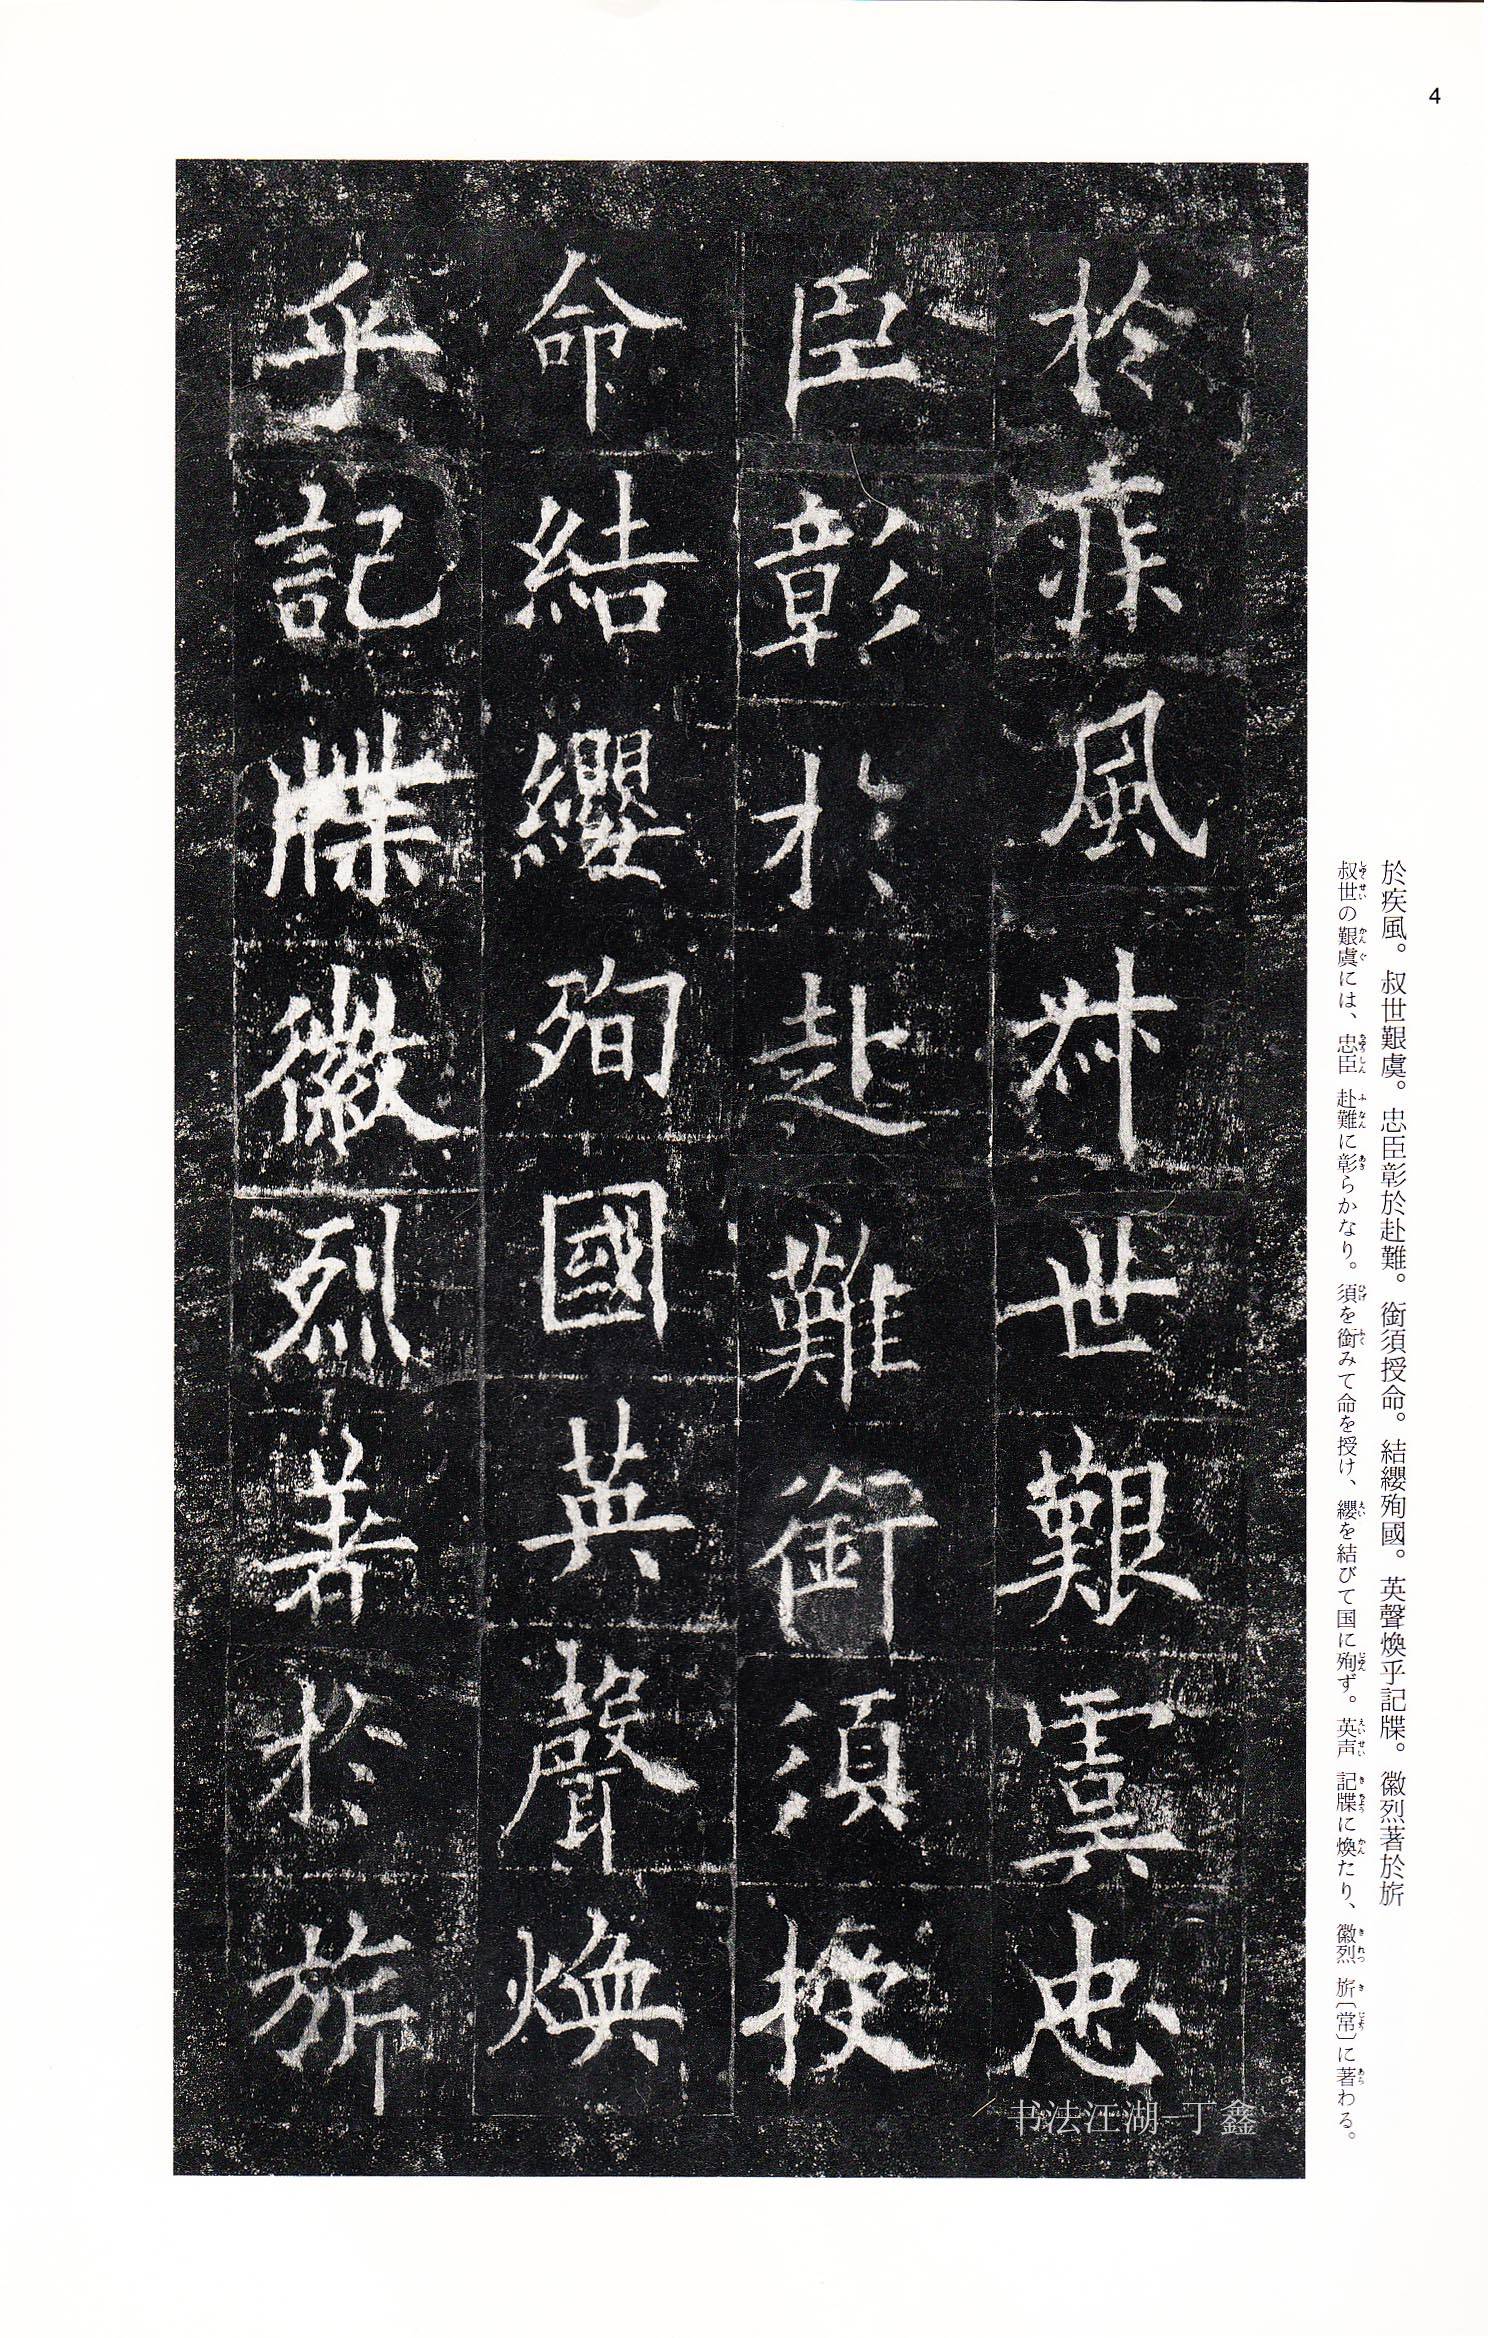 4
於疾風。叔世艱虞。忠臣彰於赴難。銜須授命。結纓殉國。英聲煥乎記牒。徽烈著於旂
叔世の艱虞には、忠臣 赴難に彰らかなり。須を銜みて命を授け、纓を結びて国に殉ず。英声 記牒に煥たり、徽烈 旂〔常〕に著わる。
於疾風叔世艱虞忠
臣彰於赴難銜須授
命結纓殉國英聲煥
乎記牒徽烈著於旂
书法江湖-丁鑫